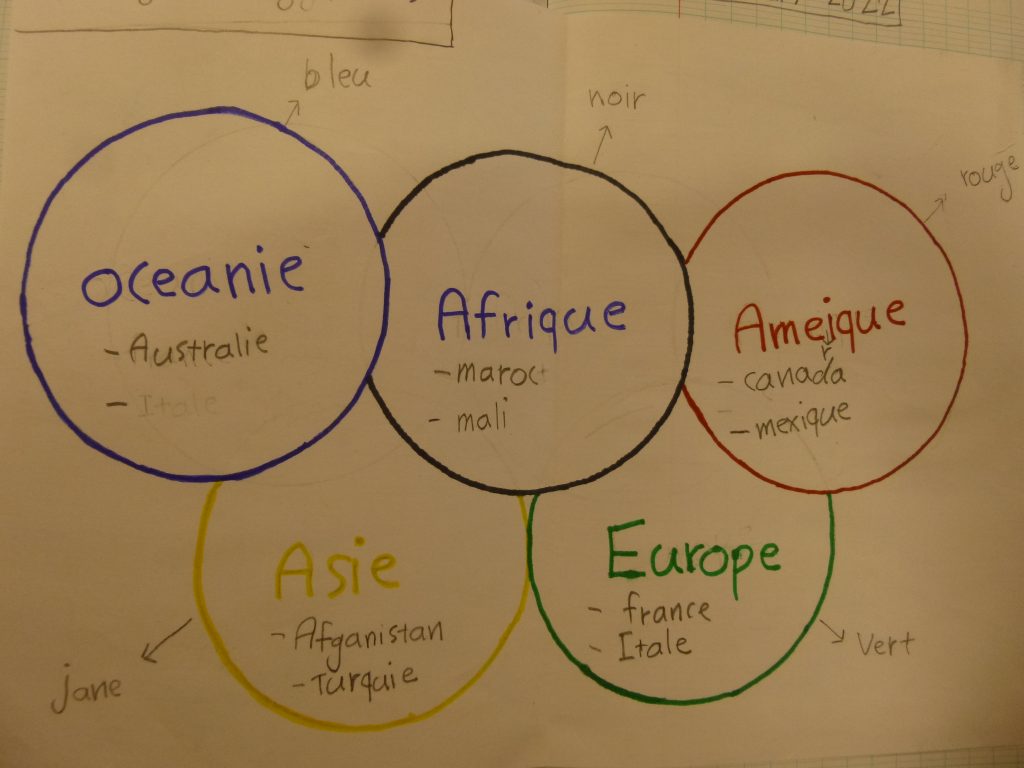 2022
bleu
noir
rouge
oceanie
- Australie
- Itale
Afrique
- maroc
- mali
Ameique
r
- canada
- mexique
Asie
- Afganistan
- Turquie
Europe
- france
- Itale
jane
vert